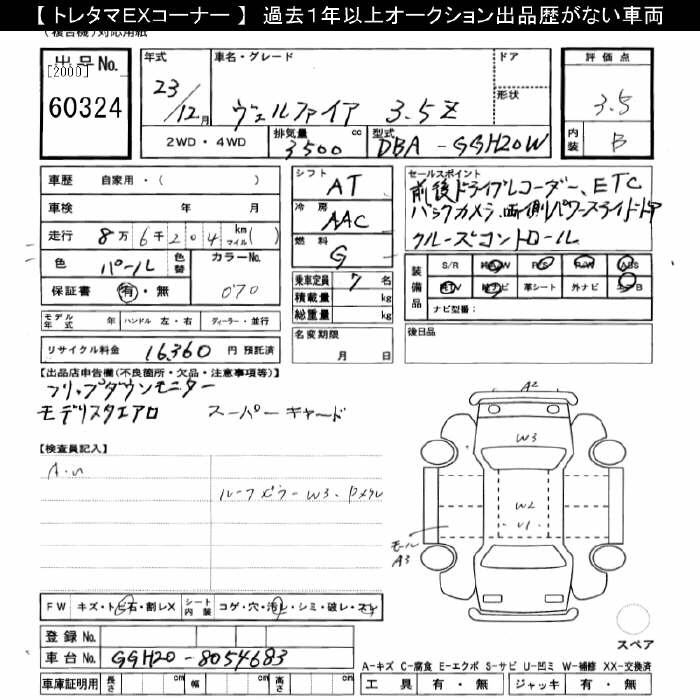 【 トレタマEXコーナー 】 過去1年以上オークション出品歴がない車両
(複合機)対応用紙
出品No.
[2000]
60324
年式
23/12月
車名・グレード
ヴェルファイア 3.5Z
ドア
形状
評価点
3.5
内装
B
2WD・4WD
排気量
3500 cc
型式
DBA-GGH20W
車歴 自家用・( )
車検 年 月
走行 8万6千204 km マイル( )
色 パール 色替 カラーNo.
070
保証書 有・無
シフト
AT
冷房
AAC
燃料
G
乗車定員 7 名
積載量 kg
総重量 kg
セールスポイント
前後ドライブレコーダー、ETC
バックカメラ、両側パワースライドドア
クルーズコントロール
装備品
S/R P/S P/W ABS
ナビ 革シート 外ナビ
ナビ型番:
モデル年式 年 ハンドル 左・右 ディーラー・並行
リサイクル料金 16,360 円 預託済
名変期限
月 日
後日品
【出品店申告欄(不良箇所・欠品・注意事項等)】
フリップダウンモニター
モデリスタエアロ スーパーチャード
【検査員記入】
ルーフピラーW3、
A2
W3
W2
U1
モール
A3
FW キズ・トビ石・割レX シート内装 コゲ・穴・汚レ・シミ・破レ・スレ
登録No.
車台No. GGH20-8054683
車庫証明用 長さ cm 幅 cm 高さ cm
スペア
A-キズ C-腐食 E-エクボ S-サビ U-凹ミ W-補修 XX-交換済
工具 有・無 ジャッキ 有・無